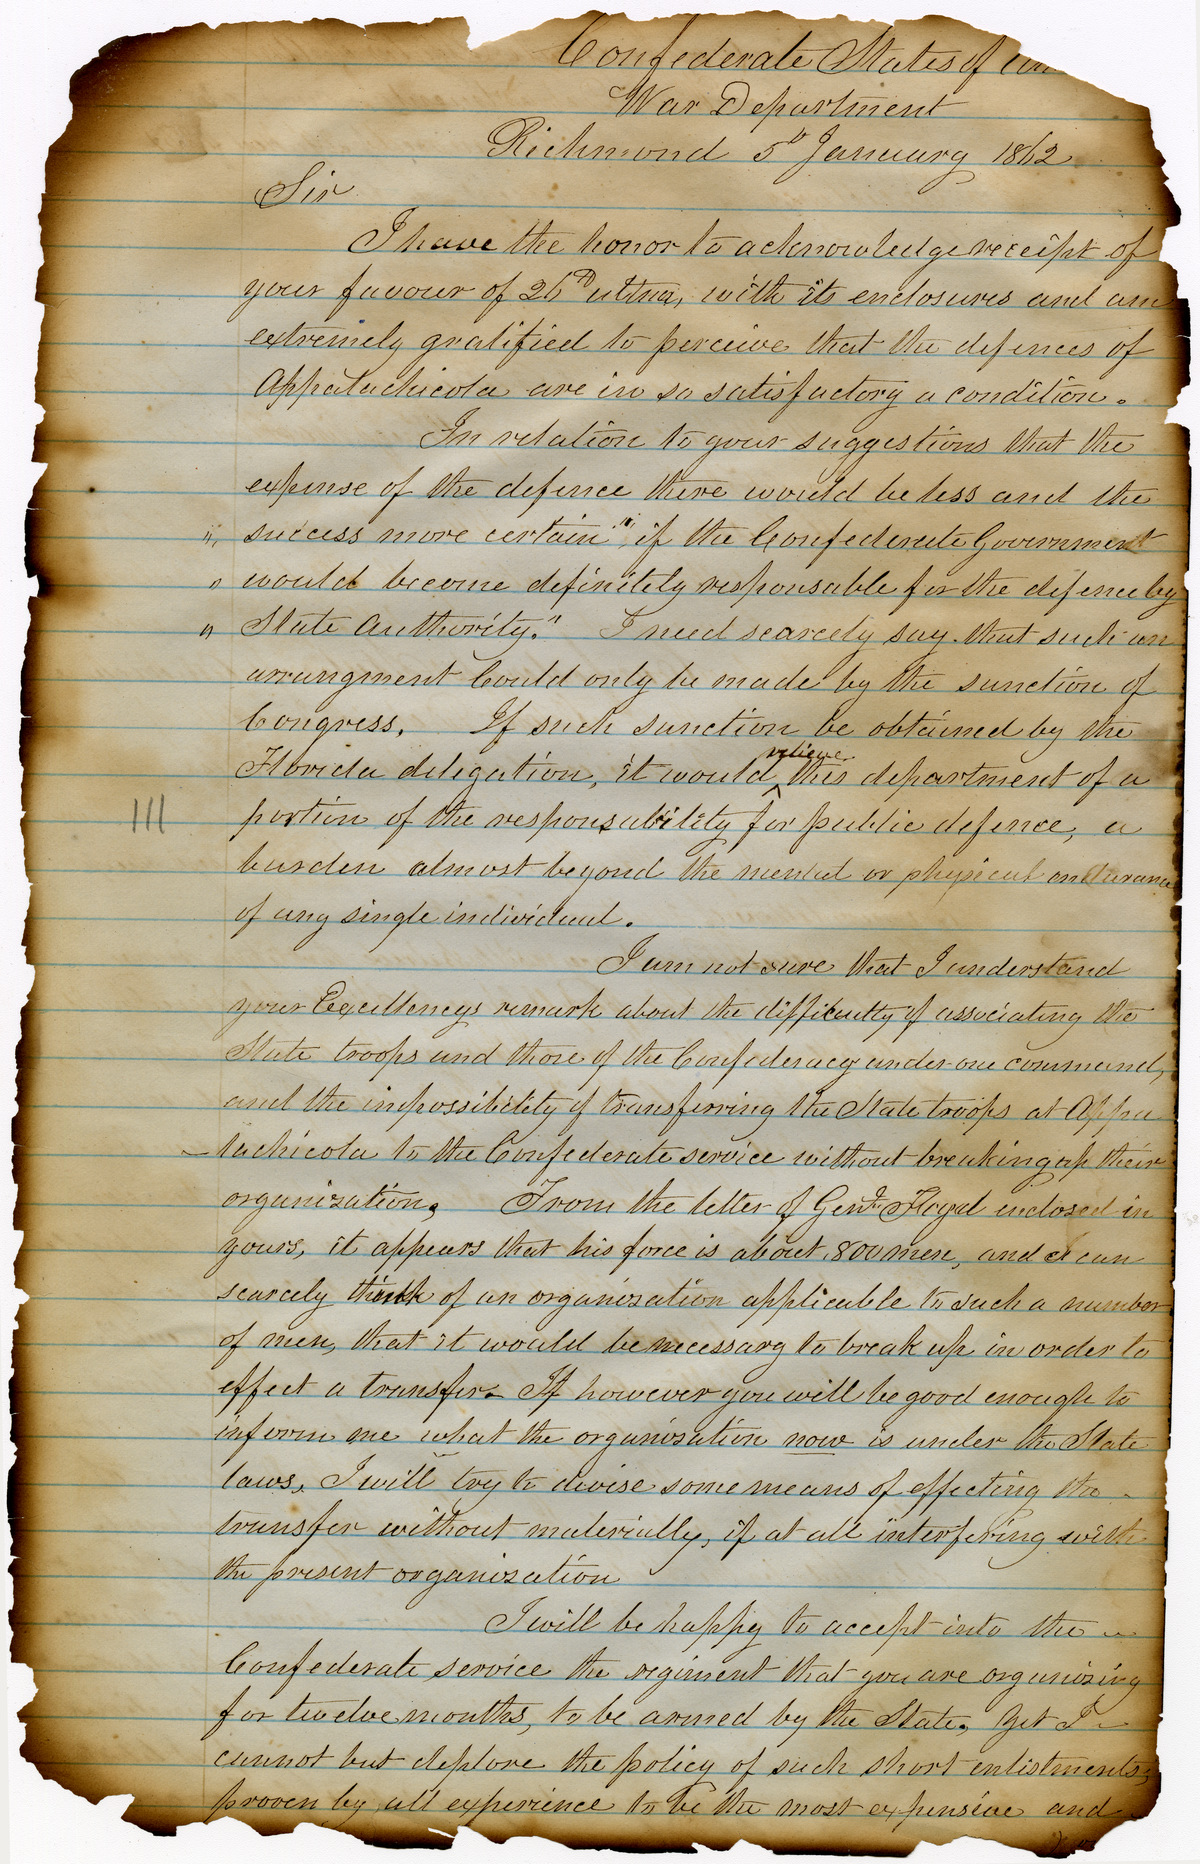 Confederate States of
War Department
Richmond 5th January 1862
Sir
I have the honor to acknowledge receipt of
your favour of 26th ultmo, with its enclosures and am
extremely gratified to perceive that the defences of
Appalachicola are in so satisfactory a condition.
In relation to your suggestions that the
expense of the defence there would be less and the
" success more certain", if the Confederate Government
" would become definitely responsable for the defence by
" State Authority." I need scarcely say that such an
arrangment Could only be made by the sanction of
Congress. If such sanction be obtained by the
Florida delegation, it would relieve this department of a
portion of the responsability for public defence, a
111
burden almost beyond the mental or physical endurance
of any single individual.
I am not sure that I understand
your Excellencys remark about the difficulty of associating the
State troops and those of the Confederacy under one command,
and the impossibility of transferring the State troops at Appa
- lachicola to the Confederate service without breaking up their
organization. From the letter of Genl Floyd enclosed in
yours, it appears that his force is about 800 men, and I can
scarcely think of an organization applicable to such a number
of men, that it would be necessary to break up in order to
effect a transfer. If however you will be good enough to
inform me what the organization now is under the State
laws, I will try to devise some means of effecting the
transfer without materially, if at all interfering with
the present organization
I will be happy to accept into the
Confederate service the regiment that you are organizing
for twelve months, to be armed by the State, yet I
cannot but deplore the policy of such short enlistments,
proven by all experience to be the most expensive and